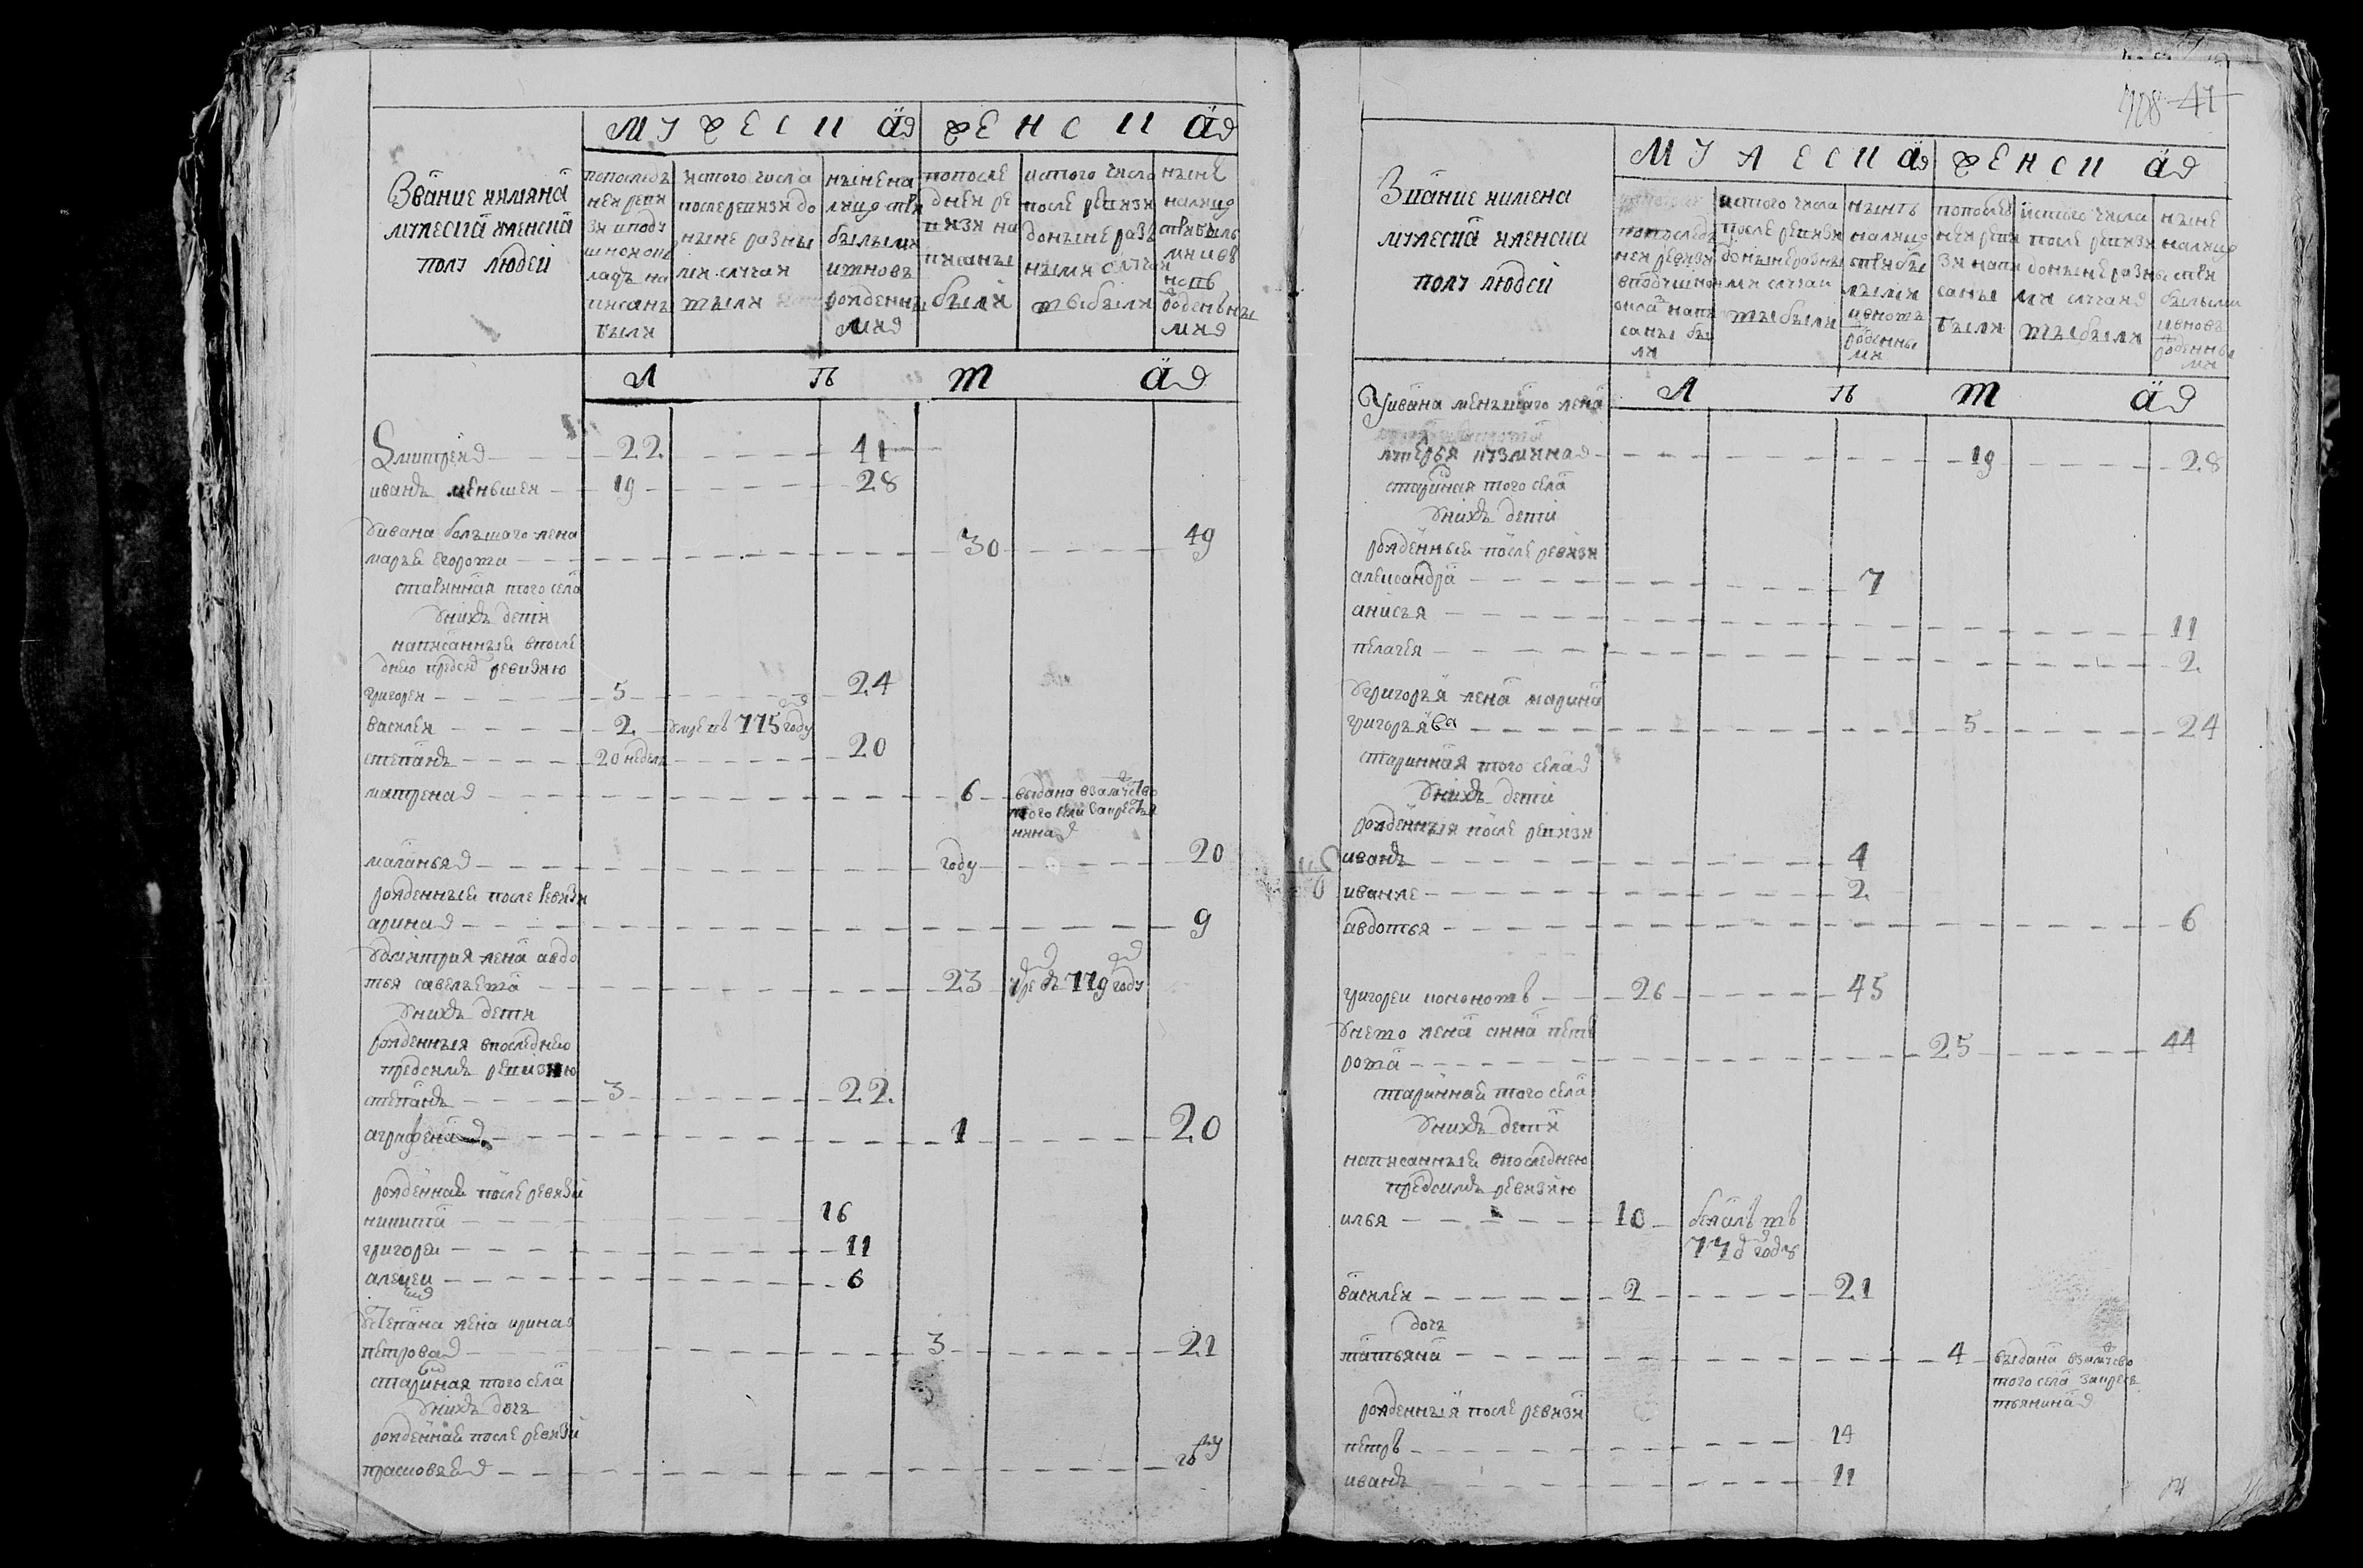 мужеска
женска
Звание иимяна
мужеска иженска
полу людей
попоследъ
ней реви
зи вподу
шной ок
ладъ на
писаны
были
истого числа
после ревизи до
ныне разны
ми случаи
выбыли
ныне на
лицо сприбылыми
ивновь
рожденны
мия
попосле
дней ре
визи на
писаны
были
истого числа
после ревизи
доныне раз
ными случаи
выбыли
ныне
налицо
л ѣ т а
Дмитрей 22 41
иванъ меньшей 19 28
Уивана большаго жена
марья егорова 30 49
старинная того села
Униxъ дети
написанные впосле
днею предсею ревизию
григорей 5 24
василей 2 умре въ 775 году
степанъ 20 недель 20
матрена 6 выдана взамужство
того села закрестья
нина
маланья году 20
рожденныи после ревизи
арина 9
Удмитрия жена авдо
тья савельева 23 умре въ 779 году
Унихъ дети
рожденныя впоследнею
предсимъ ревизию
степанъ 3 22
аграфена 1 20
рожденнаи после ревизи
никита 16
григореи 11
алексеи 6
Устепана жена ирина
петрова 3 21
стариная того села
Унихъ дочь
рожденнаи после ревизи
прасковья году
мужеска
женска
Звание иимена
мужеска иженска
полу людей
попоследъ
ней ревизи
вподушном
окла напи
саны бы
ли
истого числа
после ревизи
доныне разны
ми случаи
выбыли
ныне
налицо
сприбы
лыми
ивновь
рожденны
ми
попослед
ней реви
зи напи
саны
были
истого числа
после ревизи
доныне разны
ми случаи
выбыли
ныне
налицо
спри
былыми
ивновь
рожденны
ми
л ѣ т а
Уивана меньшаго жена
лукерья кузмина 19 28
стариная того села
Унихъ дети
рожденныи после ревизи
александра 7
анисья 11
пелагея 2
Угригорья жена марина
григорьява 5 24
старинная того села
Унихъ дети
рожденныя после ревизи
иванъ 4
иванже 2
авдотья 6
григореи кононовъ 26 45
Унево жена анна пет
рова 25 44
стариннаи того села
Унихъ дети
написанныи впоследнею
предсимъ ревизию
илья 10 бежалъ въ
77 году
василеи 2 21
дочь
татьяна 4 выдана взамужсво
того села закресь
тьянина
рожденныя после ревизи
петръ 14
иванъ 11